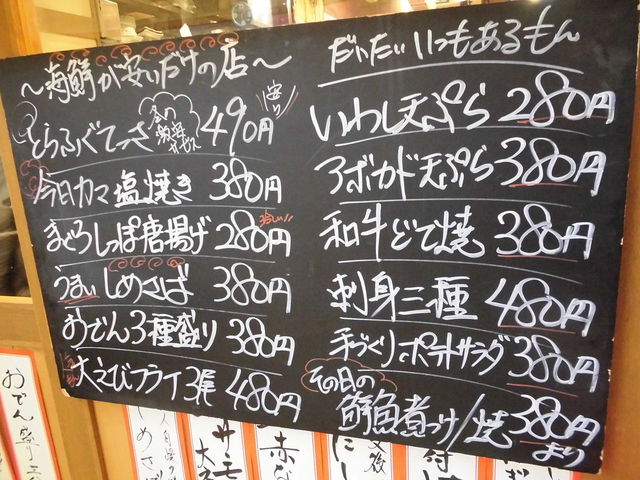 〜海鮮が安いだけの店〜
とらふぐてっさ 490円
安い
今日カマ塩焼き 380円
まぐろしっぽ唐揚げ 280円
うまいしめさば 380円
おでん3種盛り 380円
大えびフライ3尾 480円
だいたいいつもあるもん
いわし天ぷら 280円
アボカド天ぷら 380円
和牛どて焼 380円
刺身三種 480円
手づくりポテトサラダ 380円
その日の
鮮魚煮つけ/焼 380円
より
おでん